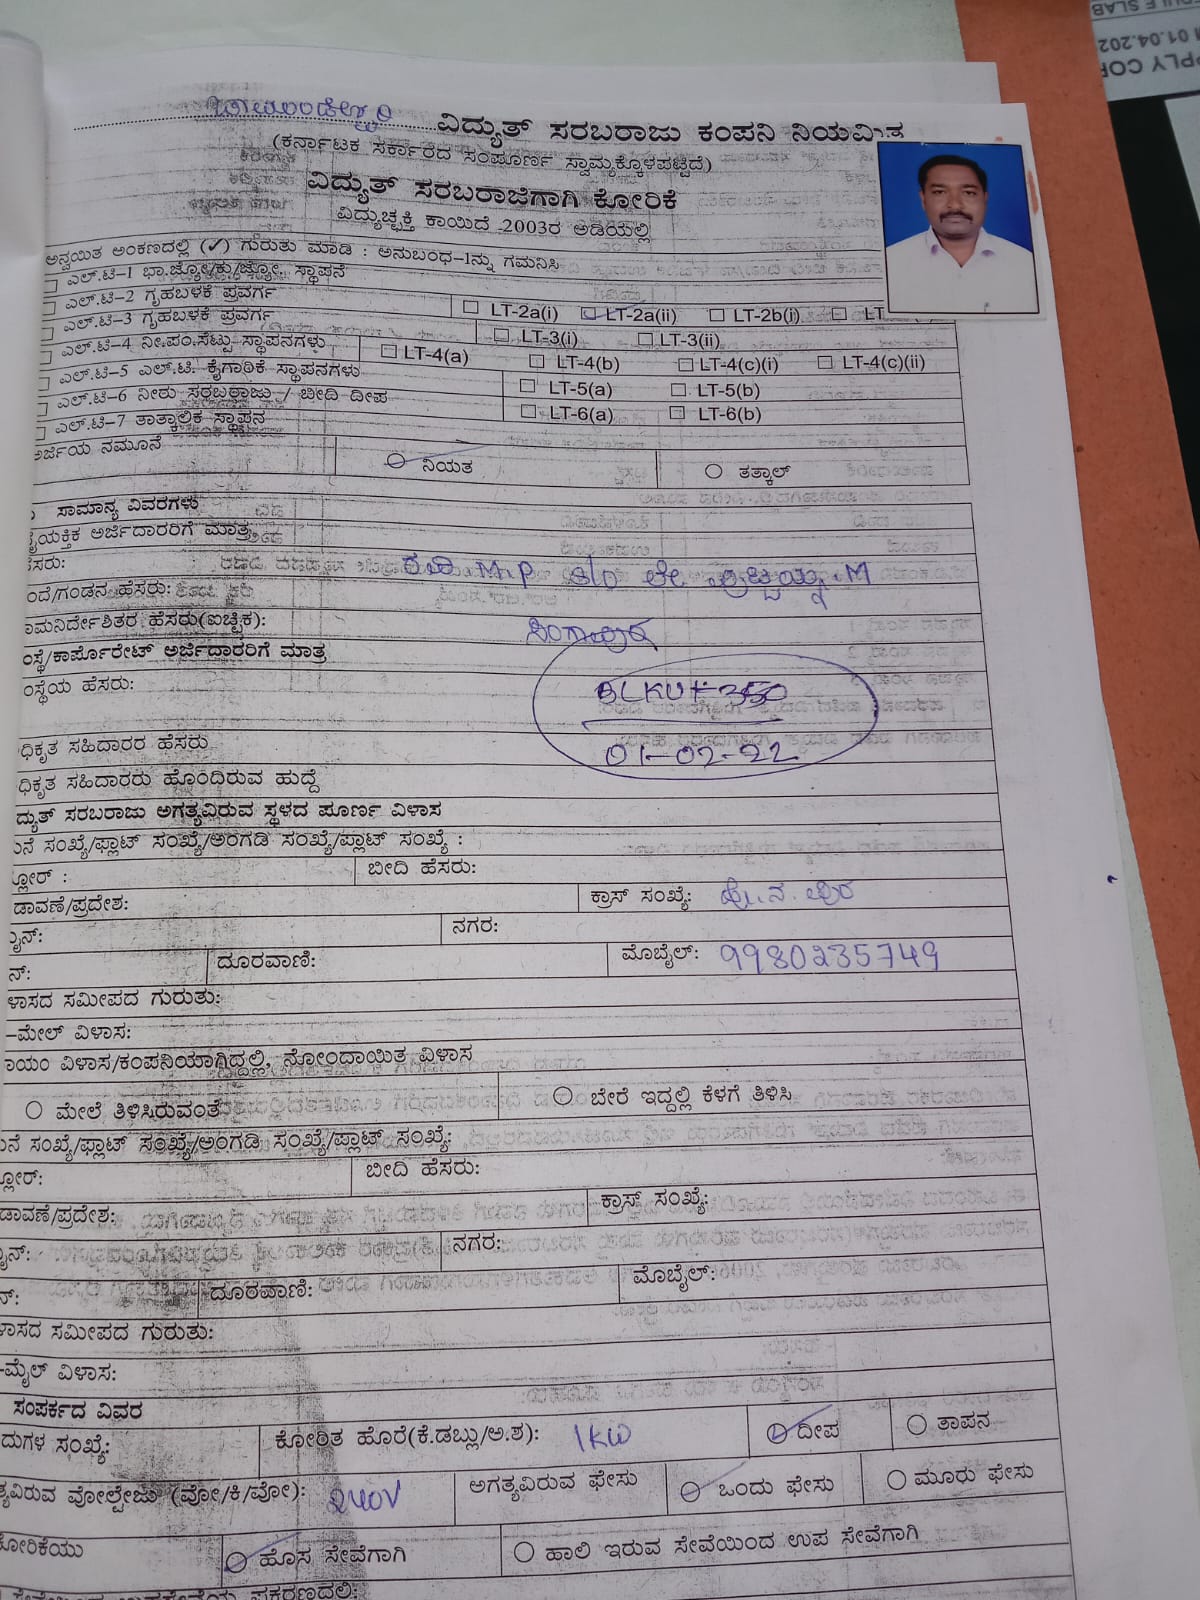 ಚಾಮುಂಡೇಶ್ವರಿ ವಿದ್ಯುತ್ ಸರಬರಾಜು ಕಂಪನಿ ನಿಯಮಿತ
(ಕರ್ನಾಟಕ ಸರ್ಕಾರದ ಸಂಪೂರ್ಣ ಸ್ವಾಮ್ಯಕ್ಕೊಳಪಟ್ಟಿದೆ)
ವಿದ್ಯುತ್ ಸರಬರಾಜಿಗಾಗಿ ಕೋರಿಕೆ
ವಿದ್ಯುಚ್ಛಕ್ತಿ ಕಾಯಿದೆ 2003ರ ಅಡಿಯಲ್ಲಿ
ಅನ್ವಯಿತ ಅಂಕಣದಲ್ಲಿ (✓) ಗುರುತು ಮಾಡಿ : ಅನುಬಂಧ-1ನ್ನು ಗಮನಿಸಿ
ಎಲ್.ಟಿ-1 ಭಾ.ಜ್ಯೋ/ಕು/ಜ್ಯೋ. ಸ್ಥಾಪನೆ
ಎಲ್.ಟಿ-2 ಗೃಹಬಳಕೆ ಪ್ರವರ್ಗ LT-2a(i) LT-2a(ii) LT-2b(i) LT
ಎಲ್.ಟಿ-3 ಗೃಹಬಳಕೆ ಪ್ರವರ್ಗ LT-3(i) LT-3(ii)
ಎಲ್.ಟಿ-4 ನೀ.ಪಂ.ಸೆಟ್ಟು ಸ್ಥಾಪನಗಳು LT-4(a) LT-4(b) LT-4(c)(i) LT-4(c)(ii)
ಎಲ್.ಟಿ-5 ಎಲ್.ಟಿ. ಕೈಗಾರಿಕೆ ಸ್ಥಾಪನಗಳು LT-5(a) LT-5(b)
ಎಲ್.ಟಿ-6 ನೀರು ಸರಬರಾಜು / ಬೀದಿ ದೀಪ LT-6(a) LT-6(b)
ಎಲ್.ಟಿ-7 ತಾತ್ಕಾಲಿಕ ಸ್ಥಾಪನ
ಅರ್ಜಿಯ ನಮೂನೆ ನಿಯತ ತತ್ಕಾಲ್
ಸಾಮಾನ್ಯ ವಿವರಗಳು
ವೈಯಕ್ತಿಕ ಅರ್ಜಿದಾರರಿಗೆ ಮಾತ್ರ
ಹೆಸರು: ರವಿ M.P S/O ಲೇ M
ಂದೆ/ಗಂಡನ ಹೆಸರು:
ಾಮನಿರ್ದೇಶಿತರ ಹೆಸರು(ಐಚ್ಛಿಕ): ಸಿಂಗಾಪುರ
ಂಸ್ಥೆ/ಕಾರ್ಪೊರೇಟ್ ಅರ್ಜಿದಾರರಿಗೆ ಮಾತ್ರ
ಂಸ್ಥೆಯ ಹೆಸರು: BLKUT-350
01-02-22
ಧಿಕೃತ ಸಹಿದಾರರ ಹೆಸರು
ಧಿಕೃತ ಸಹಿದಾರರು ಹೊಂದಿರುವ ಹುದ್ದೆ
ದ್ಯುತ್ ಸರಬರಾಜು ಅಗತ್ಯವಿರುವ ಸ್ಥಳದ ಪೂರ್ಣ ವಿಳಾಸ
ನೆ ಸಂಖ್ಯೆ/ಫ್ಲಾಟ್ ಸಂಖ್ಯೆ/ಅಂಗಡಿ ಸಂಖ್ಯೆ/ಪ್ಲಾಟ್ ಸಂಖ್ಯೆ :
ಫ್ಲೋರ್ : ಬೀದಿ ಹೆಸರು:
ಡಾವಣೆ/ಪ್ರದೇಶ: ಕ್ರಾಸ್ ಸಂಖ್ಯೆ: ಹೊ.ನ.ಪುರ
ೈನ್: ನಗರ:
ನ್: ದೂರವಾಣಿ: ಮೊಬೈಲ್: 9980235749
ಳಾಸದ ಸಮೀಪದ ಗುರುತು:
-ಮೇಲ್ ವಿಳಾಸ:
ಾಯಂ ವಿಳಾಸ/ಕಂಪನಿಯಾಗಿದ್ದಲ್ಲಿ, ನೋಂದಾಯಿತ ವಿಳಾಸ
ಮೇಲೆ ತಿಳಿಸಿರುವಂತೆ ಬೇರೆ ಇದ್ದಲ್ಲಿ ಕೆಳಗೆ ತಿಳಿಸಿ
ನೆ ಸಂಖ್ಯೆ/ಫ್ಲಾಟ್ ಸಂಖ್ಯೆ/ಅಂಗಡಿ ಸಂಖ್ಯೆ/ಪ್ಲಾಟ್ ಸಂಖ್ಯೆ:
ಫ್ಲೋರ್: ಬೀದಿ ಹೆಸರು:
ಡಾವಣೆ/ಪ್ರದೇಶ: ಕ್ರಾಸ್ ಸಂಖ್ಯೆ:
ೈನ್: ನಗರ:
ನ್: ದೂರವಾಣಿ: ಮೊಬೈಲ್:
ಳಾಸದ ಸಮೀಪದ ಗುರುತು:
-ಮೈಲ್ ವಿಳಾಸ:
ಸಂಪರ್ಕದ ವಿವರ
ದುಗಳ ಸಂಖ್ಯೆ: ಕೋರಿತ ಹೊರೆ(ಕೆ.ಡಬ್ಲು/ಅ.ಶ): 1KW ದೀಪ ತಾಪನ
ತ್ಯವಿರುವ ವೋಲ್ಟೇಜು (ವೋ/ಕಿ/ವೋ): 240V ಅಗತ್ಯವಿರುವ ಫೇಸು ಒಂದು ಫೇಸು ಮೂರು ಫೇಸು
ಕೋರಿಕೆಯು ಹೊಸ ಸೇವೆಗಾಗಿ ಹಾಲಿ ಇರುವ ಸೇವೆಯಿಂದ ಉಪ ಸೇವೆಗಾಗಿ